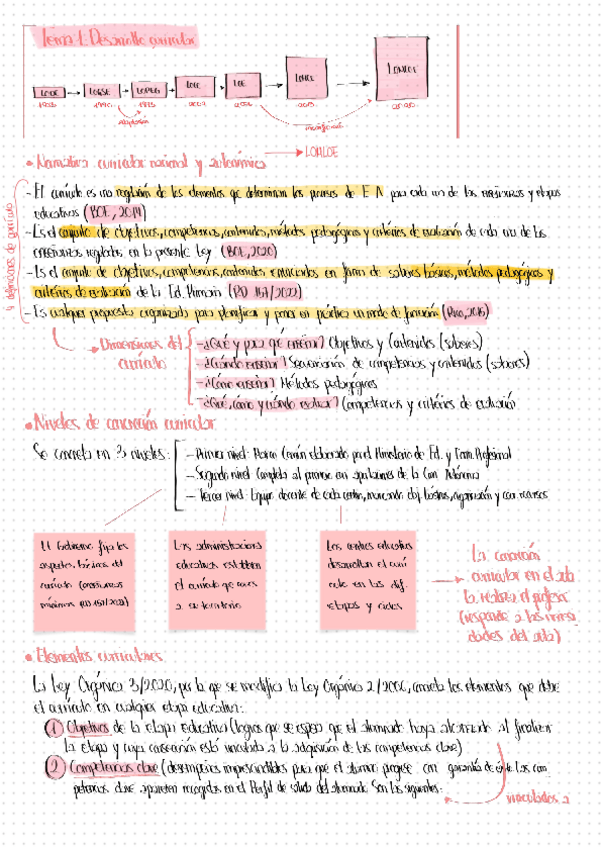 Tema 1. Desarrollo curricular
LODE → LOGSE → LOPEG → LOCE → LOE → LOMCE → LOMLOE
1985 1990 1995 2002 2006 2013 2020
modificada
• Normativa curricular nacional y autonómica → LOMLOE
4 definiciones de currículo
- El currículo es una regulación de los elementos que determinan los procesos de E A para cada una de las enseñanzas y etapas
educativas (BOE, 2014)
- Es el conjunto de objetivos, competencias, contenidos, métodos pedagógicos y criterios de evaluación de cada una de las
enseñanzas reguladas en la presente Ley (BOE, 2020)
- Es el conjunto de objetivos, competencias, contenidos enunciados en forma de saberes básicos, métodos pedagógicos y
criterios de evaluación de la Ed. Primaria (RD 157/2022)
- Es cualquier propuesta organizada para planificar y poner en práctica un modo de formación
Dimensiones del
currículo
- ¿Qué y para qué enseñar? Objetivos y Contenidos (saberes)
- ¿Cuándo enseñar? Secuenciación de competencias y contenidos (saberes)
- ¿Cómo enseñar? Métodos pedagógicos
- ¿Qué, cómo y cuándo evaluar? Competencias y criterios de evaluación
• Niveles de concreción curricular
Se concreta en 3 niveles:
- Primer nivel: Marco Común elaborado por el Ministerio de Ed. y Form. Profesional
- Segundo nivel: Completa al primero con aportaciones de la Com. Autónoma
- Tercer nivel: Equipo docente de cada centro, marcando obj. básicos, organización y coor. recursos
El Gobierno fija los
aspectos básicos del
currículo (enseñanzas
mínimas (RD 157/2022)
Las administraciones
educativas establecen
el currículo que
a su territorio
Los centros educativos
desarrollan el curri
culo en las dif.
etapas y ciclos
La concreción
curricular en el aula
la realiza el profesor
(responde a las nece
dades del aula)
• Elementos curriculares
La Ley Orgánica 3/2020, por la que se modifica la Ley Orgánica 2/2006, concreta los elementos que debe
el currículo en cualquier etapa educativa:
① Objetivos de la etapa educativa (logros que se espera que el alumnado haya alcanzado al finalizar
la etapa y cuya consecución está vinculada a la adquisición de las competencias clave)
② Competencias clave (desempeños imprescindibles para que el alumno progrese con garantía de éxito. Las com
petencias clave aparecen recogidas en el Perfil de salida del alumnado. Son las siguientes:
vinculados a